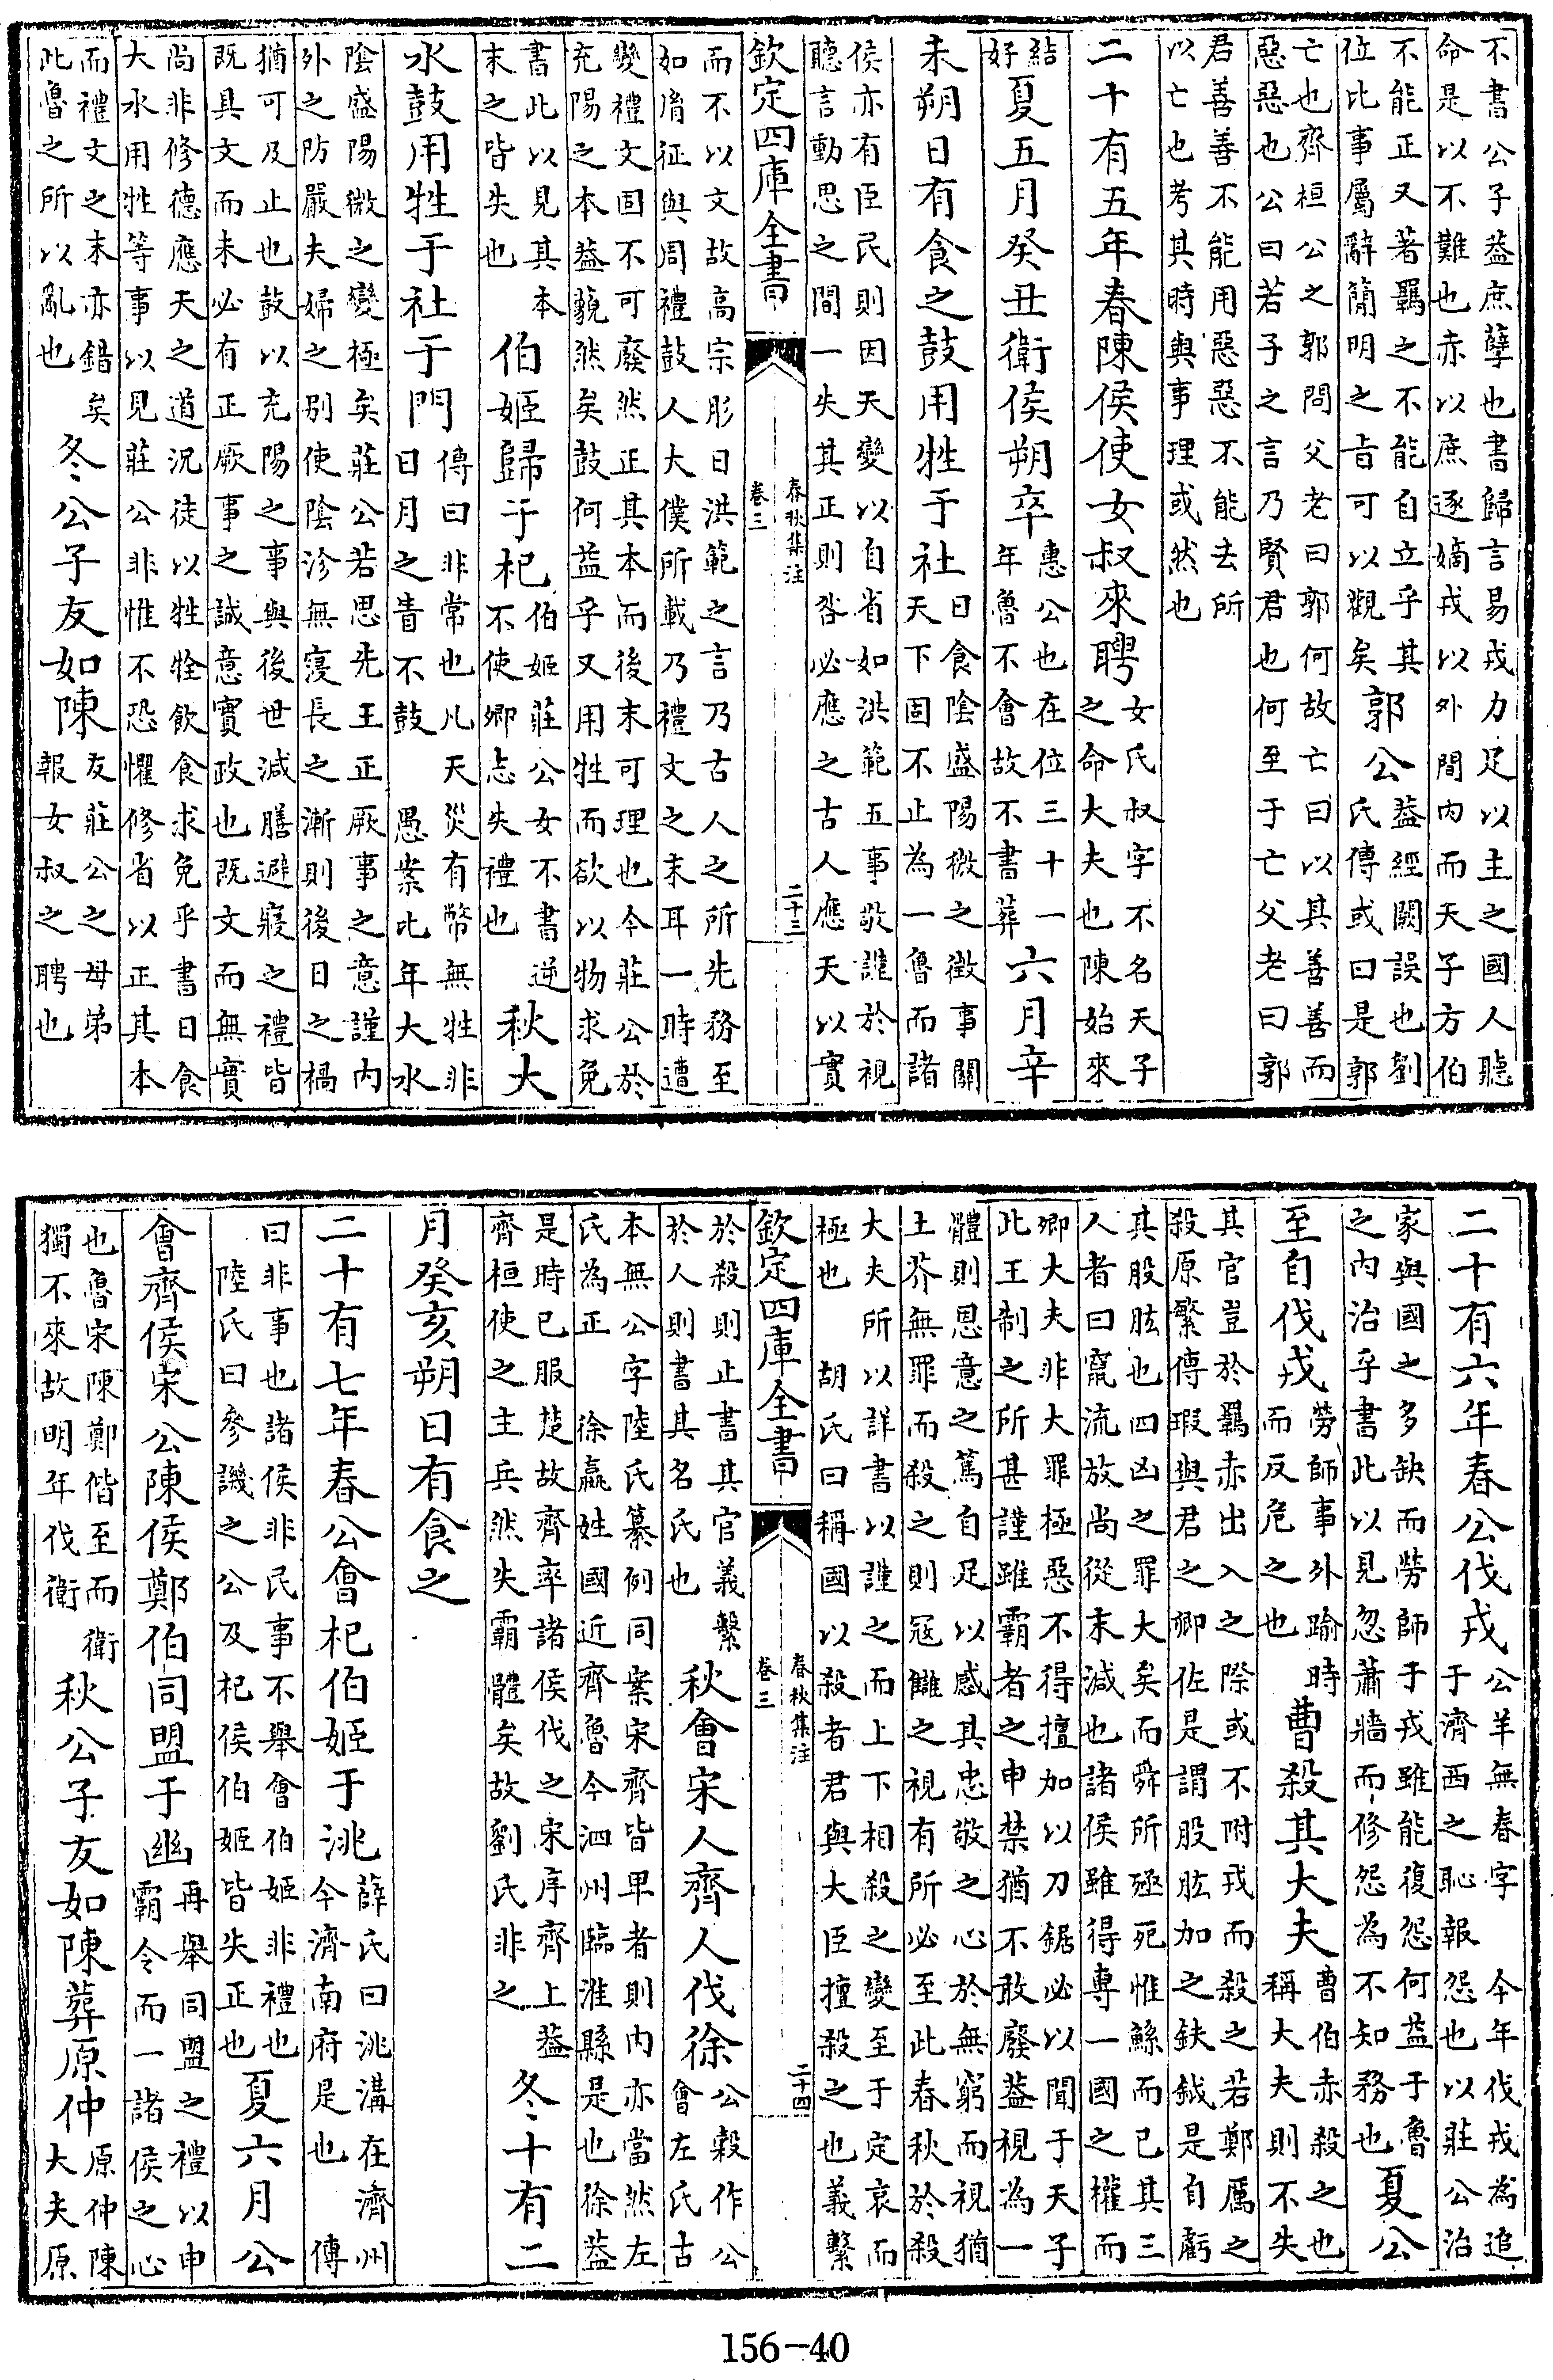 不書公子葢庶孽也書歸言易戎力足以主之國人聽
命是以不難也赤以庶逐嫡戎以外間內而天子方伯
不能正又著羈之不能自立乎其
位比事屬辭簡明之旨可以觀矣
郭公
葢經闕誤也劉
氏傳或曰是郭
亡也齊桓公之郭問父老曰郭何故亡曰以其善善而
惡惡也公曰若子之言乃賢君也何至于亡父老曰郭
君善善不能用惡惡不能去所
以亡也考其時與事理或然也
二十有五年春陳侯使女叔來聘
女氏叔字不名天子
之命大夫也陳始來
結
好
夏五月癸丑衛侯朔卒
惠公也在位三十一
年魯不會故不書葬
六月辛
未朔日有食之鼓用牲于社
日食陰盛陽微之徴事關
天下固不止為一魯而諸
侯亦有臣民則因天變以自省如洪範五事敬謹於視
聽言動思之間一失其正則咎必應之古人應天以實
欽定四庫全書
春秋集注
卷三
二十三
而不以文故高宗肜日洪範之言乃古人之所先務至
如胤征與周禮鼓人大僕所載乃禮文之末耳一時遭
變禮文固不可廢然正其本而後末可理也今莊公於
充陽之本葢藐然矣鼓何益乎又用牲而欲以物求免
書此以見其本
末之皆失也
伯姬歸于杞
伯姬莊公女不書逆
不使卿志失禮也
秋大
水鼓用牲于社于門
傳曰非常也凡天災有幣無牲非
日月之眚不鼓 愚案此年大水
陰盛陽微之變極矣莊公若思先王正厥事之意謹內
外之防嚴夫婦之別使陰沴無寖長之漸則後日之禍
猶可及止也鼓以充陽之事與後世減膳避寢之禮皆
既具文而未必有正厥事之誠意實政也既文而無實
尚非修德應天之道況徒以牲牷飲食求免乎書日食
大水用牲等事以見莊公非惟不恐懼修省以正其本
而禮文之末亦錯矣
此魯之所以亂也
冬公子友如陳
友莊公之母弟
報女叔之聘也
二十有六年春公伐戎
公羊無春字 今年伐戎為追
于濟西之恥報怨也以莊公治
家與國之多缺而勞師于戎雖能復怨何益于魯
之內治乎書此以見忽蕭牆而修怨為不知務也
夏公
至自伐戎
勞師事外踰時
而反危之也
曹殺其大夫
曹伯赤殺之也
稱大夫則不失
其官豈於羈赤出入之際或不附戎而殺之若鄭厲之
殺原繁傳瑕與君之卿佐是謂股肱加之鈇鉞是自虧
其股肱也四凶之罪大矣而舜所殛死惟鯀而已其三
人者曰竄流放尚從末減也諸侯雖得專一國之權而
卿大夫非大罪極惡不得擅加以刀鋸必以聞于天子
此王制之所甚謹雖霸者之申禁猶不敢廢葢視為一
體則恩意之篤自足以感其忠敬之心於無窮而視猶
土芥無罪而殺之則冦讎之視有所必至此春秋於殺
大夫所以詳書以謹之而上下相殺之變至于定哀而
極也 胡氏曰稱國以殺者君與大臣擅殺之也義繫
欽定四庫全書
春秋集注
卷三
二十四
於殺則止書其官義繫
於人則書其名氏也
秋會宋人齊人伐徐
公穀作公
會左氏古
本無公字陸氏纂例同案宋齊皆卑者則內亦當然左
氏為正 徐嬴姓國近齊魯今泗州臨淮縣是也徐葢
是時已服楚故齊率諸侯伐之宋序齊上葢
齊桓使之主兵然失霸體矣故劉氏非之
冬十有二
月癸亥朔日有食之
二十有七年春公會杞伯姬于洮
薛氏曰洮溝在濟州
今濟南府是也 傳
曰非事也諸侯非民事不舉會伯姬非禮也
陸氏曰參譏之公及杞侯伯姬皆失正也
夏六月公
會齊侯宋公陳侯鄭伯同盟于幽
再舉同盟之禮以申
霸令而一諸侯之心
也魯宋陳鄭偕至而衛
獨不來故明年伐衛
秋公子友如陳葬原仲
原仲陳
大夫原
156-40